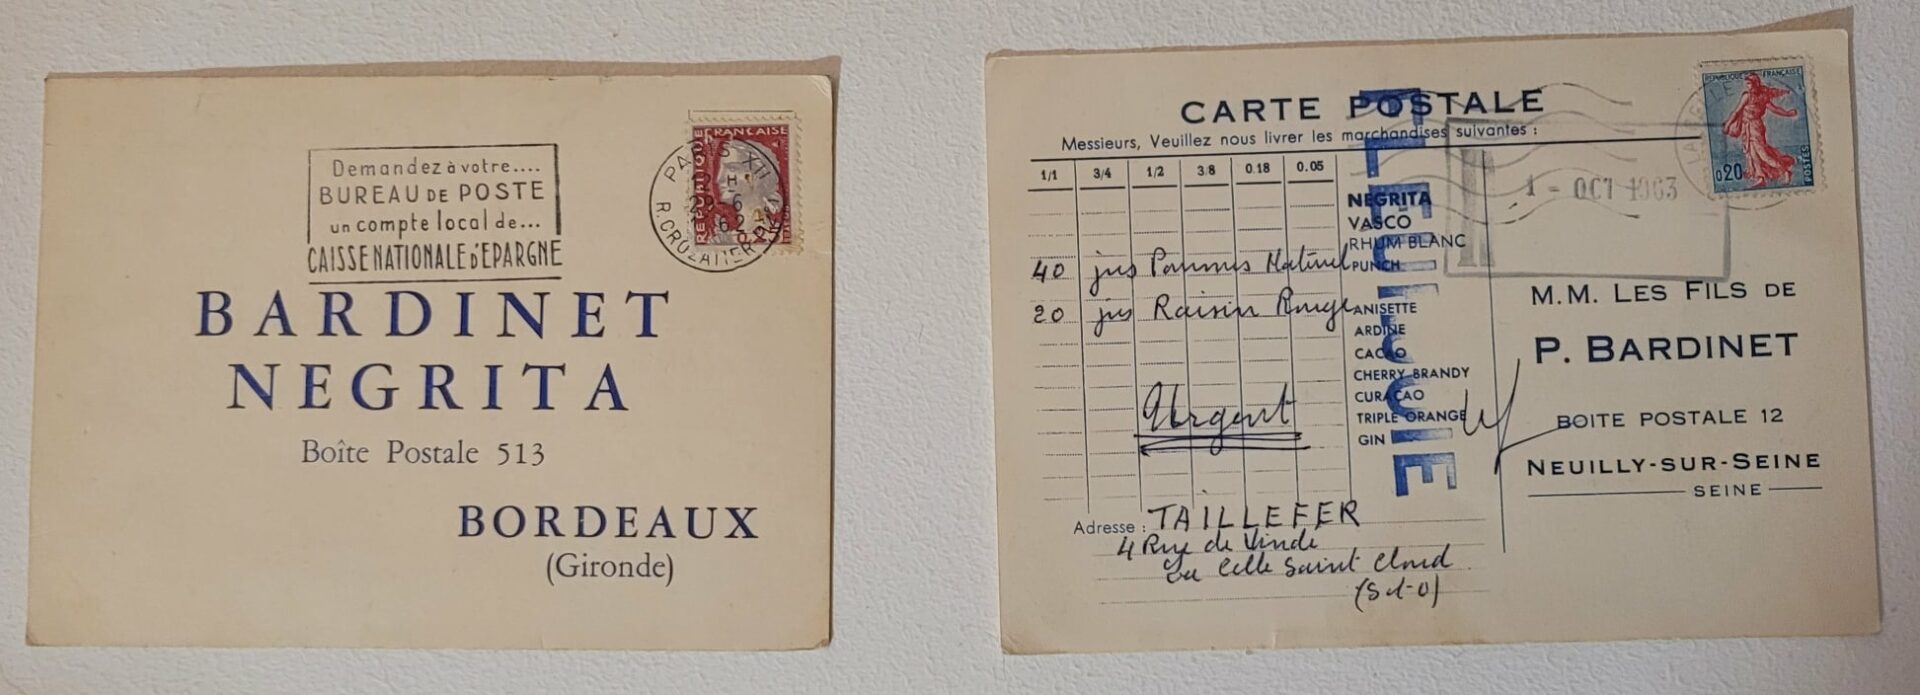 Demandez à votre....
BUREAU DE POSTE
un compte local de...
CAISSE NATIONALE D'ÉPARGNE
REPUBLIQUE FRANCAISE
PARIS XII
R.CROZATIER
BARDINET
NEGRITA
Boîte Postale 513
BORDEAUX
(Gironde)
CARTE POSTALE
Messieurs, Veuillez nous livrer les marchandises suivantes :
1/1 3/4 1/2 3/8 0.18 0.05
NEGRITA
VASCO
RHUM BLANC
PUNCH
40 jus Pommes Naturel
20 jus Raisin Rouge
ANISETTE
ARDINE
CACAO
CHERRY-BRANDY
CURAÇAO
TRIPLE ORANGE
GIN
Urgent
Adresse : TAILLEFER
4 Rue de Vindé
La Celle Saint Cloud
(S-et-O)
REPUBLIQUE FRANÇAISE
0,20
POSTES
1 - OCT 1963
M.M. LES FILS DE
P. BARDINET
BOITE POSTALE 12
NEUILLY-SUR-SEINE
SEINE